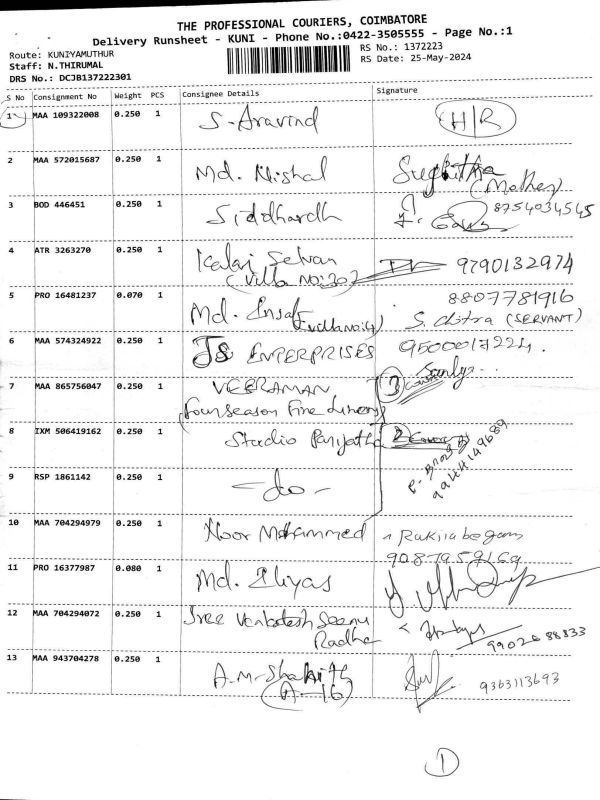 THE PROFESSIONAL COURIERS, COIMBATORE
Delivery Runsheet - KUNI - Phone No.:0422-3505555 - Page No.:1
Route: KUNIYAMUTHUR
RS No.: 1372223
Staff: N.THIRUMAL
RS Date: 25-May-2024
DRS No.: DCJB137222301
S No Consignment No Weight PCS Consignee Details Signature
1 MAA 109322008 0.250 1 S. Aravind H/R
2 MAA 572015687 0.250 1 Md. Nishal
(Mother)
3 BOD 446451 0.250 1 Siddhardh 8754034545
4 ATR 3263270 0.250 1 Kalai Selvan 9790132974
(Villa No: 30)
8807781916
5 PRO 16481237 0.070 1 Md. S. chitra (SERVANT)
6 MAA 574324922 0.250 1 ENTERPRISES 9500017224.
7 MAA 865756047 0.250 1 VEERAMAN 3
(Four Season Fine
8 IXM 506419162 0.250 1 Studio 2
9944149689
9 RSP 1861142 0.250 1 - do -
10 MAA 704294979 0.250 1 Noor Mohammed Rukiia begam
11 PRO 16377987 0.080 1 Md. Iliyas
12 MAA 704294072 0.250 1 Sree Venkatesh Seenu
Radha
13 MAA 943704278 0.250 1 9363113693
(A-16)
1